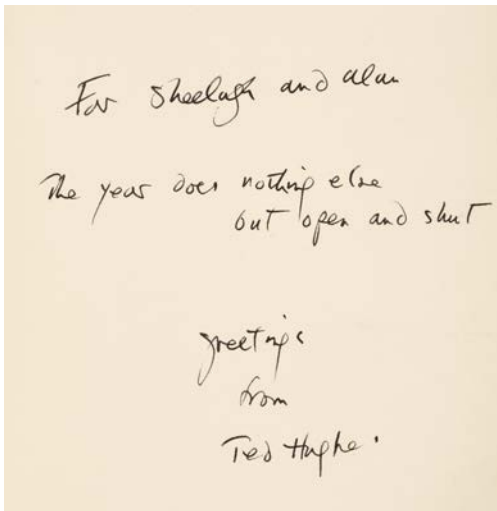 For Sheelagh and Alan
The year does nothing else
but open and shut
greetings
from
Ted Hughes